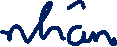 nhân